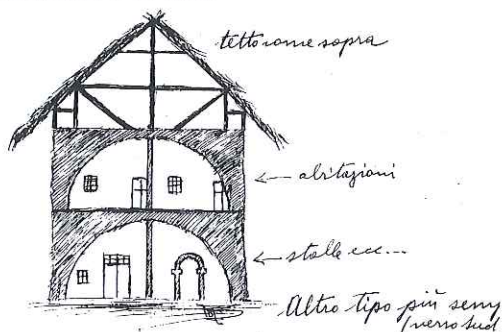 tetto come sopra
← abitazioni
← stalle ecc...
Altro tipo più sem
(verso Sud